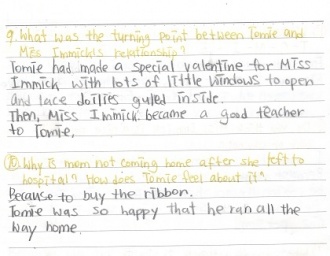 9. What was the turning point between Tomie and
Miss Immick's relationship?
Tomie had made a special valentine for Miss
Immick with lots of little windows to open
and lace doilies guled inside.
Then, Miss Immick became a good teacher
to Tomie.
⑩ Why is mom not coming home after she left to
hospital? How does Tomie feel about it?
Because to buy the ribbon.
Tomie was so happy that he ran all the
way home.